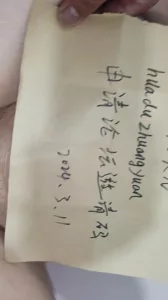 huladuzhuangyuan
申请论坛邀请码
2024.3.11